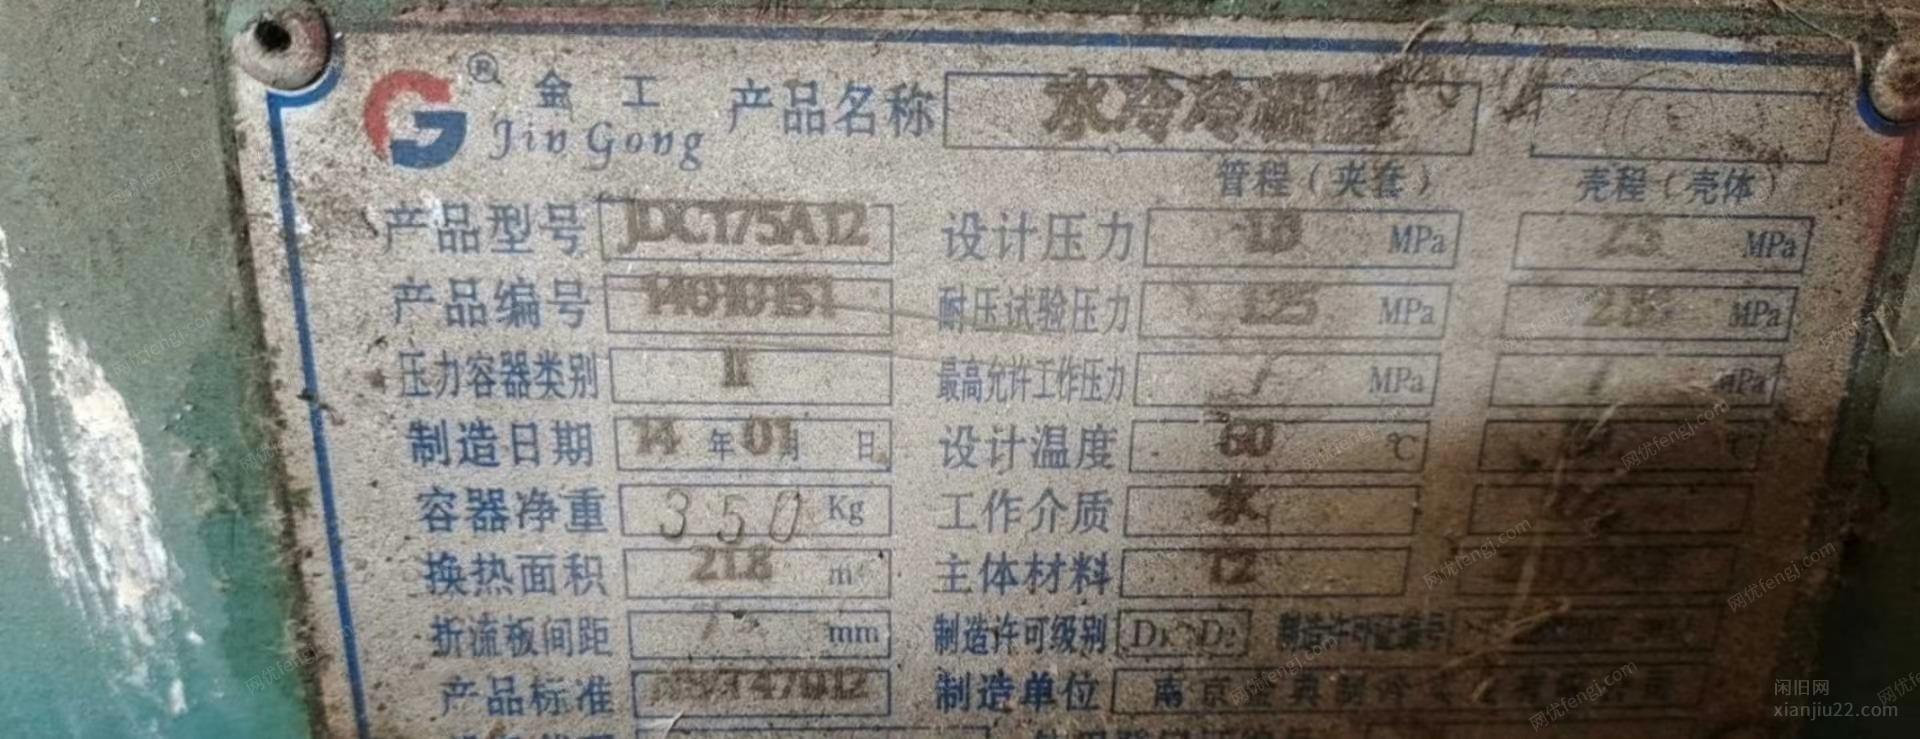 ® 金工 产品名称 水冷冷凝器
Jin Gong
管程（夹套） 壳程（壳体）
产品型号 JDC175A12 设计压力 1.0 MPa MPa
产品编号 14010151 耐压试验压力 1.25 MPa MPa
压力容器类别 II 最高允许工作压力 / MPa / MPa
制造日期 14 年 01 月 日 设计温度 60 ℃ ℃
容器净重 350 Kg 工作介质 水
换热面积 21.8 m² 主体材料 T2
折流板间距 mm 制造许可级别 D1、D2 制造许可证编号
产品标准 制造单位
闲旧网
xianjiu22.com
网优fengj.com